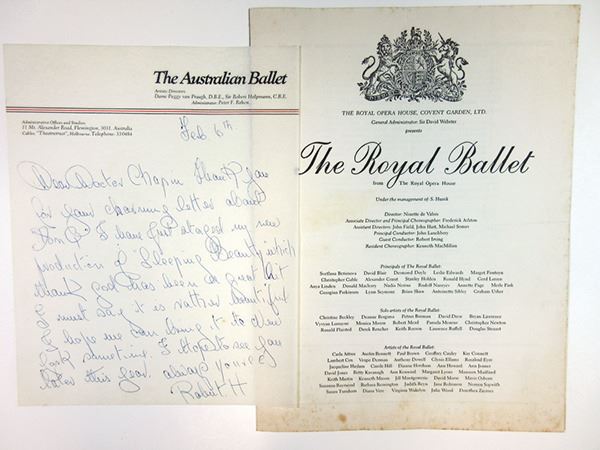 The Australian Ballet
Artistic Directors:
Dame Peggy van Praagh, D.B.E., Sir Robert Helpmann, C.B.E.
Administrator: Peter F. Bahen.
Administrative Offices and Studios:
11 Mt. Alexander Road, Flemington, 3031. Australia
Cables, "Theatretrust", Melbourne. Telephone:
Feb 6th
Dear Doctor Chapin Thank you
for your charming letter about
I have just staged my new
production of Sleeping Beauty which
thank god has been a great hit
I must say it is rather beautiful
I hope we can bring it to New
York sometime. I hope to see you
later this year. always yours
Robert H
THE ROYAL OPERA HOUSE, COVENT GARDEN, LTD.
General Administrator: Sir David Webster
presents
The Royal Ballet
from The Royal Opera House
Under the management of S. Hurok
Director: Ninette de Valois
Associate Director and Principal Choreographer: Frederick Ashton
Assistant Directors: John Field, John Hart, Michael Somes
Principal Conductor: John Lanchbery
Guest Conductor: Robert Irving
Resident Choreographer: Kenneth MacMillan
Principals of The Royal Ballet:
Svetlana Beriosova David Blair Desmond Doyle Leslie Edwards Margot Fonteyn
Christopher Gable Alexander Grant Stanley Holden Ronald Hynd Gerd Larsen
Anya Linden Donald MacLeary Nadia Nerina Rudolf Nureyev Annette Page Merle Park
Georgina Parkinson Lynn Seymour Brian Shaw Antoinette Sibley Graham Usher
Solo artists of the Royal Ballet:
Christine Beckley Deanne Bergsma Petrus Bosman David Drew Bryan Lawrence
Vyvyan Lorrayne Monica Mason Robert Mead Pamela Moncur Christopher Newton
Ronald Plaisted Derek Rencher Keith Rosson Laurence Ruffell Douglas Steuart
Artists of the Royal Ballet:
Carla Attree Austin Bennett Paul Brown Geoffrey Cauley Kay Connett
Lambert Cox Vergie Derman Anthony Dowell Glynis Ellams Rosalind Eyre
Jacqueline Haslam Carole Hill Dianne Horsham Ann Howard Ann Jenner
David Jones Betty Kavanagh Ann Kenward Margaret Lyons Maureen Maitland
Keith Martin Kenneth Mason Jill Montgomerie David Morse Marie Osborn
Suzanna Raymond Barbara Remington Judith Reyn Jane Robinson Noreen Sopwith
Susan Turnham Diana Vere Virginia Wakelyn Julia Wood Dorothea Zaymes